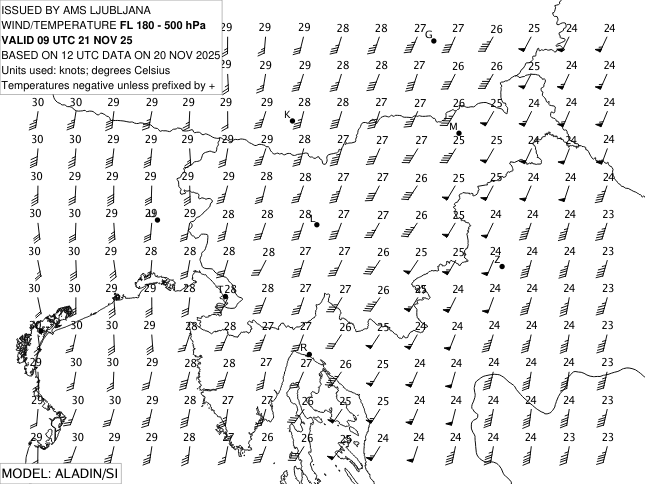 ISSUED BY AMS LJUBLJANA
WIND/TEMPERATURE FL 180 - 500 hPa
VALID 09 UTC 21 NOV 25
BASED ON 12 UTC DATA ON 20 NOV 2025
Units used: knots; degrees Celsius
Temperatures negative unless prefixed by +
29 29 28 28 28 27 27 26 25 24 24
G
29 29 29 28 28 27 27 26 25 24 24
30 30 29 29 29 29 29 28 28 28 27 26 25 24 24 24
K
M
30 30 29 29 29 29 29 28 27 27 27 25 25 24 24 24
30 30 29 29 29 29 28 28 27 27 26 25 25 24 24 24
30 30 29 29 29 28 28 28 27 27 26 25 24 24 24 23
L
30 30 29 28 28 28 28 27 27 26 25 25 24 24 24 23
Z
30 30 29 29 28 T 28 28 27 27 26 25 24 24 24 24 23
30 30 30 29 28 28 27 27 26 25 24 24 24 24 24 23
R
29 30 30 29 28 28 27 27 26 25 24 24 24 24 24 23
29 30 30 29 28 27 27 26 25 25 24 24 24 24 24 23
29 30 29 29 28 27 26 26 25 24 24 24 24 24 23 23
MODEL: ALADIN/SI